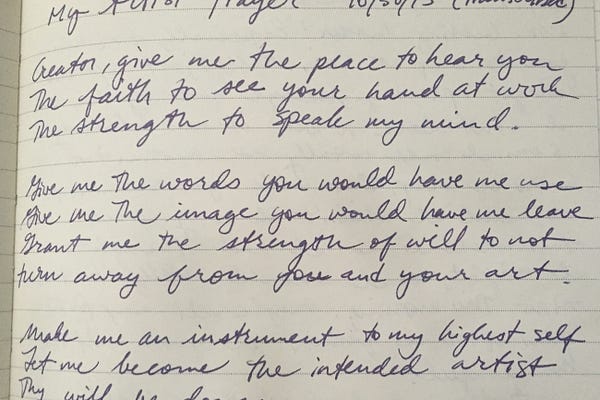 My Artist Prayer 10/30/15 (transcribed)
Creator, give me the peace to hear you
The faith to see your hand at work
The strength to speak my mind.
Give me The words you would have me use
Give me The image you would have me leave
Grant me the strength of will to not
turn away from you and your art.
Make me an instrument to my highest self
Let me become the intended artist
Thy will be done